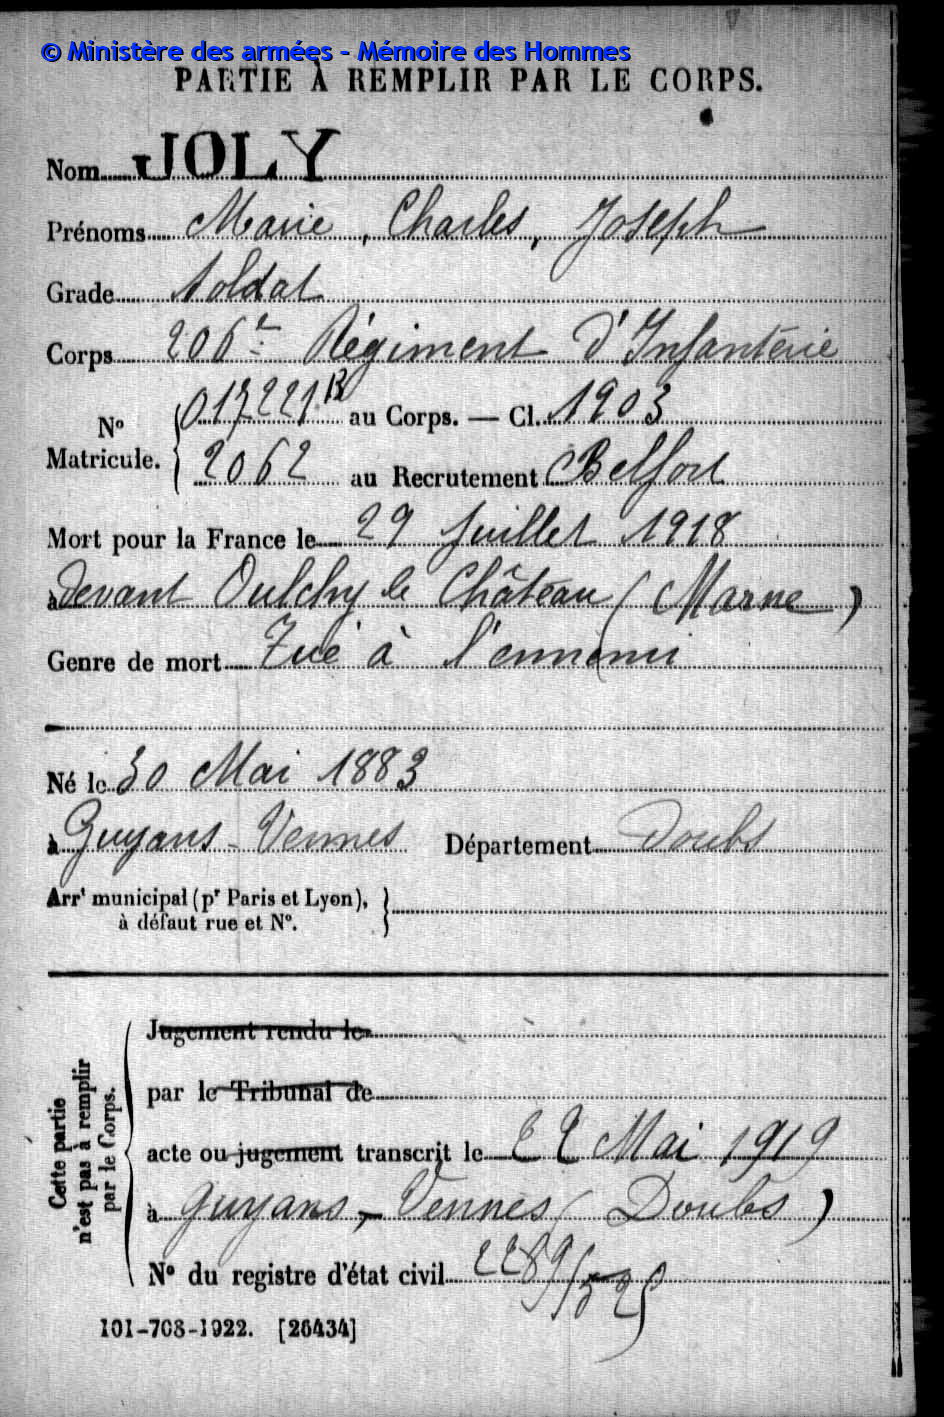 © Ministère des armées - Mémoire des Hommes
PARTIE À REMPLIR PAR LE CORPS.
Nom JOLY
Prénoms Marie, Charles, Joseph
Grade Soldat
Corps 206e Régiment d'Infanterie
No Matricule. 017221 B au Corps. — Cl. 1903
2062 au Recrutement Belfort
Mort pour la France le 29 Juillet 1918
à devant Oulchy le Château (Marne)
Genre de mort Tué à l'ennemi
Né le 30 Mai 1883
à Guyans-Vennes Département Doubs
Arrt municipal (pr Paris et Lyon),
à défaut rue et No.
Cette partie
n'est pas à remplir
par le Corps.
Jugement rendu le
par le Tribunal de
acte ou jugement transcrit le 22 Mai 1919
à Guyans-Vennes (Doubs)
No du registre d'état civil 2289/525
101-708-1922. [26434]